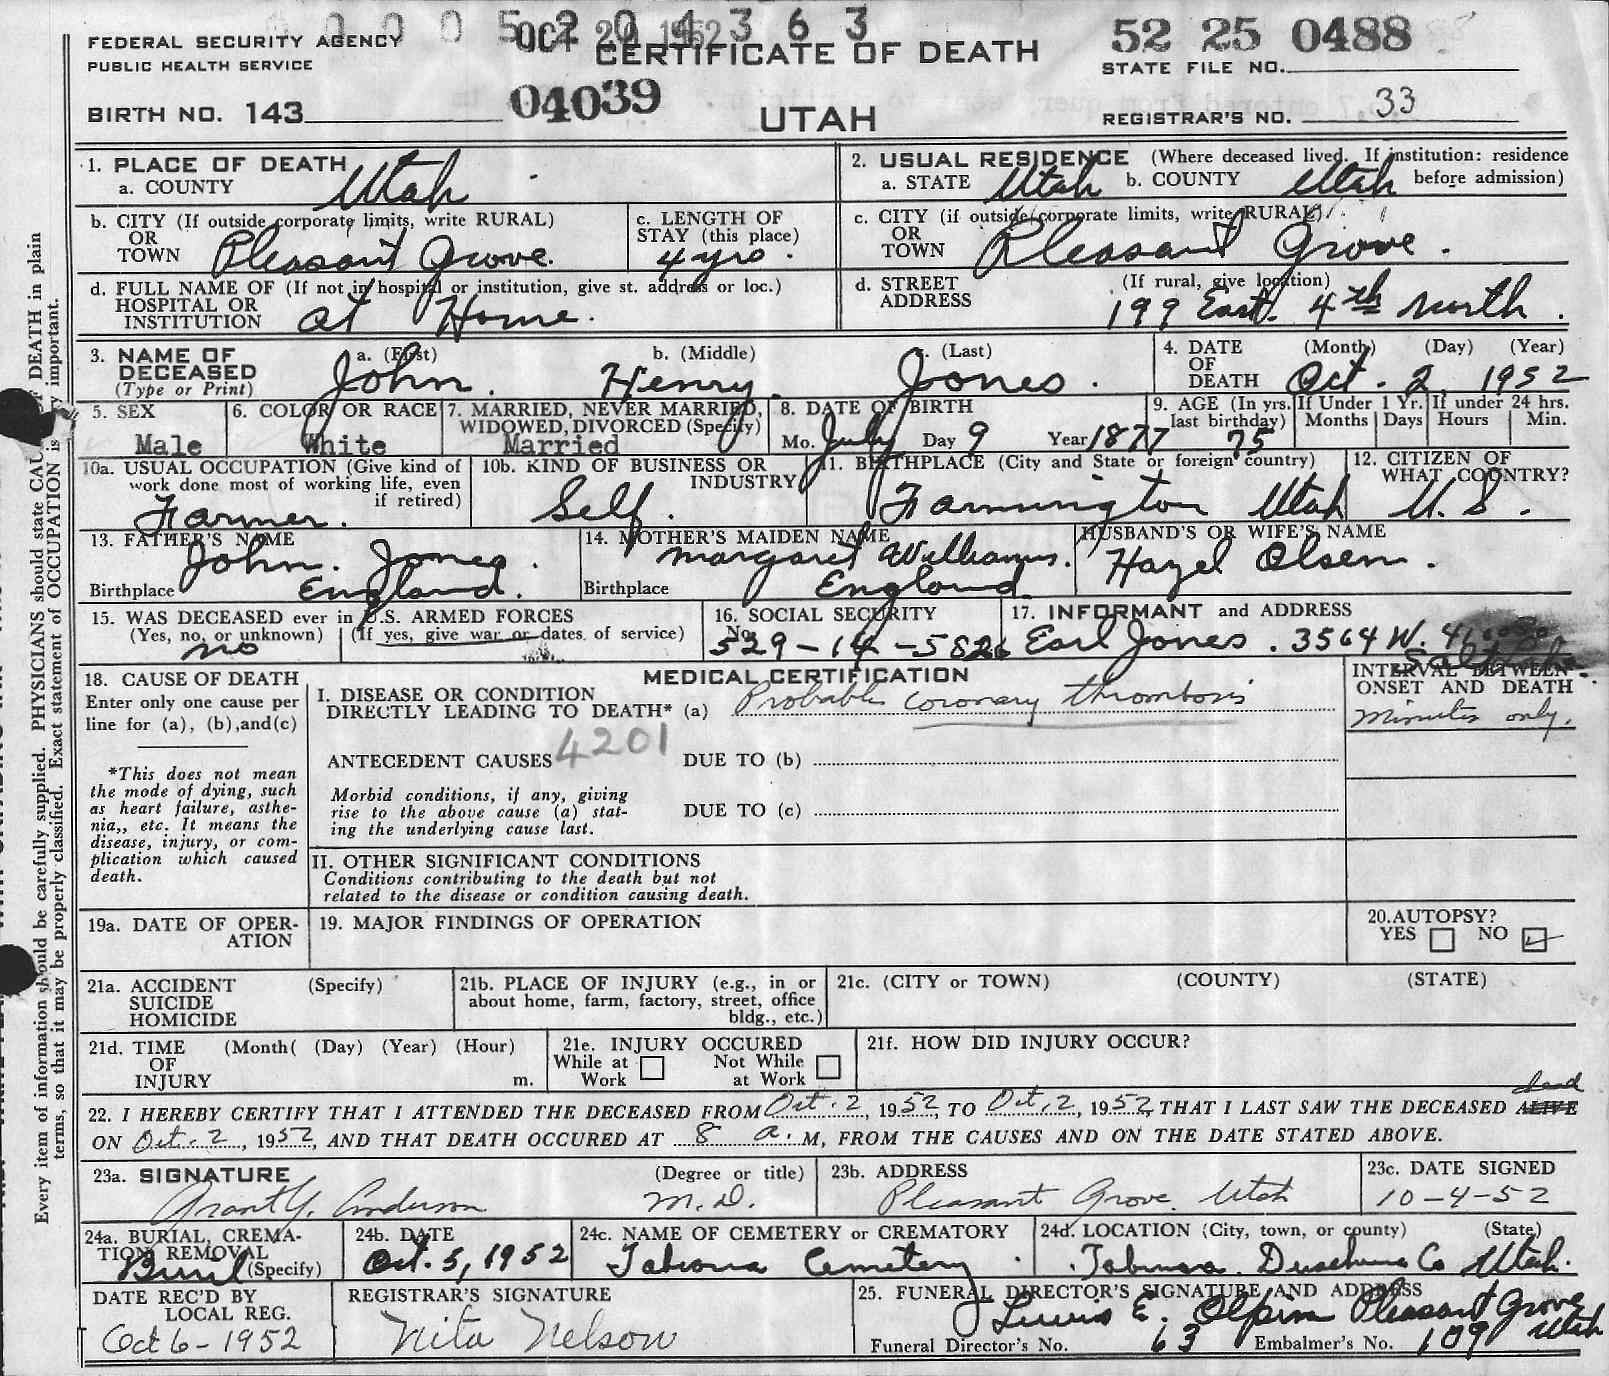 0 0 0 0 5 2 0 4 3 6 3
OCT 20 1952
52 25 0488
FEDERAL SECURITY AGENCY
PUBLIC HEALTH SERVICE
CERTIFICATE OF DEATH
STATE FILE NO.
BIRTH NO. 143
04039
UTAH
REGISTRAR'S NO. 33
1. PLACE OF DEATH
a. COUNTY Utah
2. USUAL RESIDENCE (Where deceased lived. If institution: residence
a. STATE Utah b. COUNTY Utah before admission)
b. CITY (If outside corporate limits, write RURAL)
OR
TOWN Pleasant Grove.
c. LENGTH OF
STAY (this place)
4 yrs.
c. CITY (if outside corporate limits, write RURAL)
OR
TOWN Pleasant Grove.
d. FULL NAME OF (If not in hospital or institution, give st. address or loc.)
HOSPITAL OR
INSTITUTION at Home.
d. STREET (If rural, give location)
ADDRESS 199 East. 4th North.
3. NAME OF
DECEASED
(Type or Print)
a. (First) b. (Middle) c. (Last)
John. Henry. Jones.
4. DATE (Month) (Day) (Year)
OF
DEATH Oct. 2 1952
5. SEX
Male
6. COLOR OR RACE
White
7. MARRIED, NEVER MARRIED,
WIDOWED, DIVORCED (Specify)
Married
8. DATE OF BIRTH
Mo. July Day 9 Year 1877
9. AGE (In yrs.
last birthday)
75
If Under 1 Yr.
Months Days
If under 24 hrs.
Hours Min.
10a. USUAL OCCUPATION (Give kind of
work done most of working life, even
if retired)
Farmer.
10b. KIND OF BUSINESS OR
INDUSTRY
Self.
11. BIRTHPLACE (City and State or foreign country)
Farmington Utah
12. CITIZEN OF
WHAT COUNTRY?
U. S.
13. FATHER'S NAME
John. Jones.
Birthplace England.
14. MOTHER'S MAIDEN NAME
Margaret Williams.
Birthplace England
HUSBAND'S OR WIFE'S NAME
Hazel Olsen.
15. WAS DECEASED ever in U.S. ARMED FORCES
(Yes, no, or unknown) (If yes, give war or dates of service)
no
16. SOCIAL SECURITY
No.
529-14-5826
17. INFORMANT and ADDRESS
Earl Jones. 3564 W.
18. CAUSE OF DEATH
Enter only one cause per
line for (a), (b), and (c)
*This does not mean
the mode of dying, such
as heart failure, asthe-
nia,, etc. It means the
disease, injury, or com-
plication which caused
death.
MEDICAL CERTIFICATION
I. DISEASE OR CONDITION
DIRECTLY LEADING TO DEATH* (a) Probable coronary thrombosis
INTERVAL BETWEEN
ONSET AND DEATH
Minutes only.
ANTECEDENT CAUSES 4201 DUE TO (b)
Morbid conditions, if any, giving
rise to the above cause (a) stat-
ing the underlying cause last.
DUE TO (c)
II. OTHER SIGNIFICANT CONDITIONS
Conditions contributing to the death but not
related to the disease or condition causing death.
19a. DATE OF OPER-
ATION
19. MAJOR FINDINGS OF OPERATION
20. AUTOPSY?
YES NO
21a. ACCIDENT (Specify)
SUICIDE
HOMICIDE
21b. PLACE OF INJURY (e.g., in or
about home, farm, factory, street, office
bldg., etc.)
21c. (CITY or TOWN) (COUNTY) (STATE)
21d. TIME (Month( (Day) (Year) (Hour)
OF
INJURY m.
21e. INJURY OCCURED
While at Not While
Work at Work
21f. HOW DID INJURY OCCUR?
dead
22. I HEREBY CERTIFY THAT I ATTENDED THE DECEASED FROM Oct. 2, 1952, TO Oct. 2, 1952, THAT I LAST SAW THE DECEASED ALIVE
ON Oct. 2, 1952, AND THAT DEATH OCCURED AT 8 a. M, FROM THE CAUSES AND ON THE DATE STATED ABOVE.
23a. SIGNATURE (Degree or title)
Grant Y. Anderson M.D.
23b. ADDRESS
Pleasant Grove. Utah
23c. DATE SIGNED
10-4-52
24a. BURIAL, CREMA-
TION REMOVAL
(Specify)
Burial
24b. DATE
Oct. 5, 1952
24c. NAME OF CEMETERY or CREMATORY
Tabiona Cemetery
24d. LOCATION (City, town, or county) (State)
Tabiona. Duschene Co Utah.
DATE REC'D BY
LOCAL REG.
Oct 6-1952
REGISTRAR'S SIGNATURE
Nita Nelson
25. FUNERAL DIRECTOR'S SIGNATURE AND ADDRESS
Lewis E. Olpin Pleasant Grove
Utah
Funeral Director's No. 63 Embalmer's No. 109
Every item of information should be carefully supplied. PHYSICIANS should state DEATH in plain
terms, so that it may be properly classified. Exact statement of OCCUPATION is important.